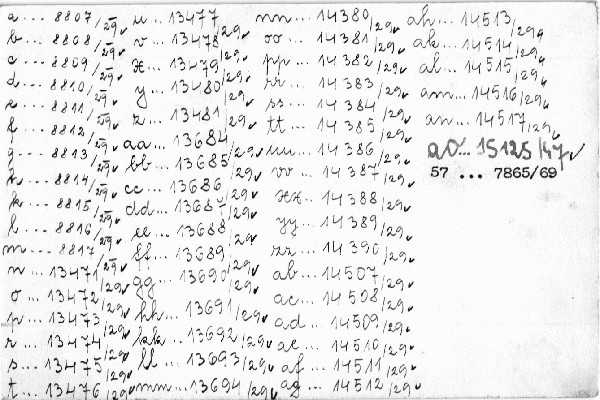 a... 8807/29
b... 8808/29
c... 8809/29
d... 8810/29
e... 8811/29
f... 8812/29
g... 8813/29
h... 8814/29
k... 8815/29
l... 8816/29
m... 8817/29
n... 13471/29
o... 13472/29
p... 13473/29
r... 13474/29
s... 13475/29
t... 13476/29
u... 13477
v... 13478/29
x... 13479/29
y... 13480/29
z... 13481/29
aa... 13684
bb... 13685/29
cc... 13686/29
dd... 13687/29
ee... 13688
ff... 13689/29
gg... 13690/29
hh... 13691/29
kk... 13692/29
ll... 13693/29
mm... 13694/29
nn... 14380/29
oo... 14381/29
pp... 14382/29
rr... 14383/29
ss... 14384
tt... 14385/29
uu... 14386
vv... 14387/29
xx... 14388
yy... 14389/29
zz... 14390
ab... 14507/29
ac... 14508/29
ad... 14509/29
ae... 14510/29
af... 14511/29
ag... 14512/29
ah... 14513/29
ak... 14514/29
al... 14515/29
am... 14516/29
an... 14517/29
ao... 15125/47
57 ... 7865/69